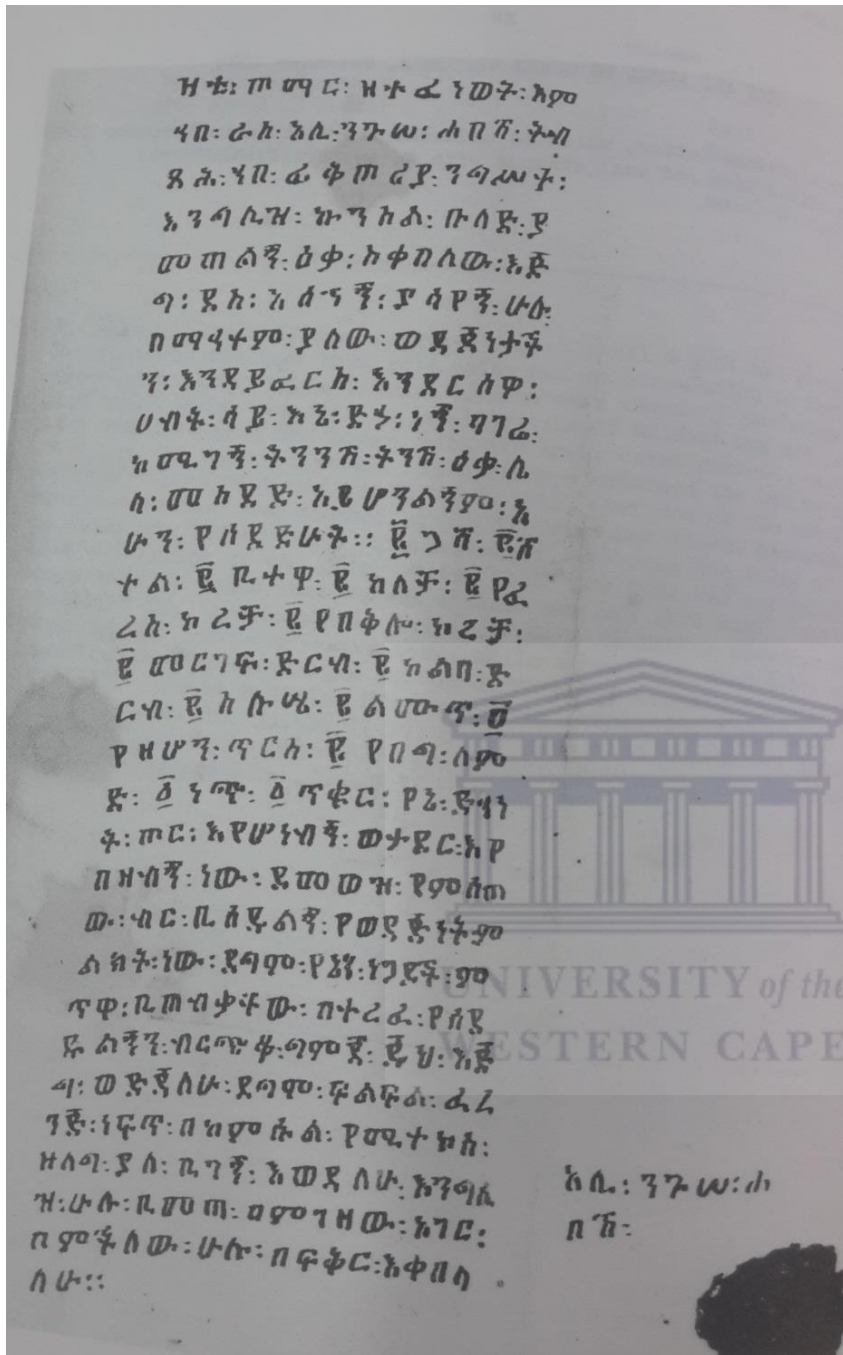 ዝቲ፡ ጦማር፡ ዝተፈነወት፡ እም
ኀበ፡ ራስ፡ አሊ፡ ንጉሠ፡ ሐበሻ፡ ትብ
ጻሕ፡ ኀበ፡ ፊቅጦሪያ፡ ንግሥት፡
እንግሊዝ፡ ኩንስል፡ ቡላድ፡ ያ
መጠልኝ፡ ዕቃ፡ ከቀበለው፡ እጅ
ግ፡ ደስ፡ አሰኘኝ፡ ያሳየኝ፡ ሁሉ
በማኅተም፡ ያለው፡ ወዳጀነታች
ን፡ እንዳይፈርስ፡ እንደርስዋ፡
ሀብት፡ ሳይ፡ እኔ፡ ድኃ፡ ነኝ፡ ባገሬ፡
ከሚግኝ፡ ትንንሽ፡ ትንሽ፡ ዕቃ፡ ሲ
ለ፡ መስደድ፡ አይሆንልኝም፡ አ
ሁን፡ የሰደድሁት፡፡ ፪ ጋሻ፡ ፪ሽ
ተል፡ ፪ ቢተዋ፡ ፪ ከለቻ፡ ፪ የፈ
ረስ፡ ኮረቻ፡ ፪ የበቅሎ፡ ኮረቻ፡
፪ መርገፍ፡ ድርብ፡ ፪ ከልበ፡ ድ
ርብ፡ ፪ አሉሜ፡ ፪ ልሙጥ፡ ፬
የዘሆን፡ ጥርስ፡ ፪ የበግ፡ ለም
ድ፡ ፩ ነጭ፡ ፩ ጥቁር፡ የኔ፡ ድኅነ
ት፡ ጦር፡ እየሆነብኝ፡ ወታደር፡ እየ
በዘብኝ፡ ነው፡ ደመወዝ፡ የምሰጠ
ው፡ ብር፡ ቢሰዱልኝ፡ የወዳጅነትም
ልክት፡ ነው፡ ደግም፡ የኔን፡ ነጋዶች፡ ም
ጥዋ፡ ቢጠብቃቸው፡ በተረፈ፡ የሰደ
ዱልኝን፡ ብርጭቆ፡ ግምጃ፡ ጁህ፡ እጅ
ግ፡ ወድጃለሁ፡ ደግሞ፡ ፍልፍል፡ ፈረ
ንጅ፡ ነፍጥ፡ በከምሱል፡ የሚተኮስ፡
ዘለግ፡ ያለ፡ ቢግኝ፡ እወደ ለሁ፡ እንግሊ
ዝ፡ ሁሉ፡ ቢመጣ፡ በምግዛው፡ አገር፡
በምችለው፡ ሁሉ፡ በፍቅር፡ እቀበላ
ለሁ፡፡
አሊ፡ ንጉሠ፡ ሐ
በሻ፡
UNIVERSITY of the
WESTERN CAPE